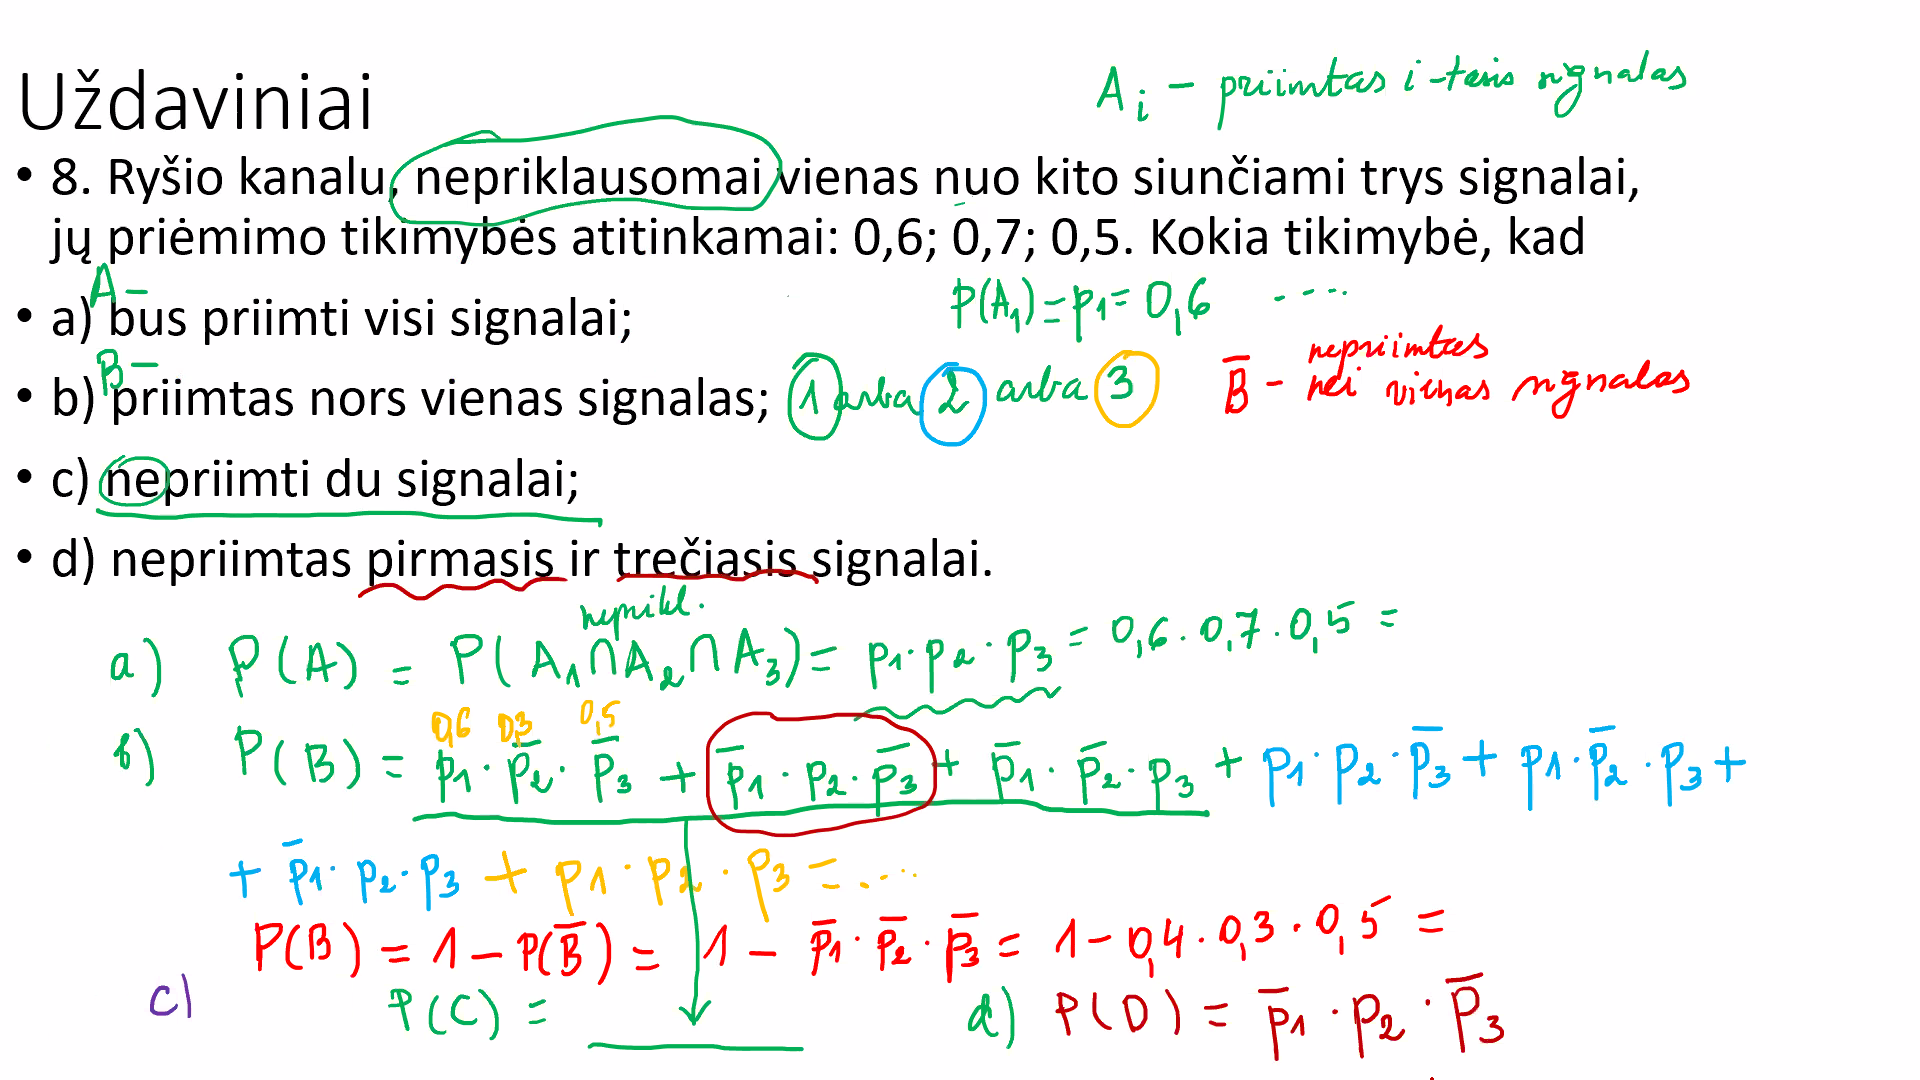 Uždaviniai
A i – priimtas i-tasis signalas
• 8. Ryšio kanalu, nepriklausomai vienas nuo kito siunčiami trys signalai,
jų priėmimo tikimybės atitinkamai: 0,6; 0,7; 0,5. Kokia tikimybė, kad
A –
• a) bus priimti visi signalai;
P(A₁) = p₁ = 0,6 ....
B –
• b) priimtas nors vienas signalas; 1 arba 2 arba 3
B̅ – nepriimtas
nei vienas signalas
• c) nepriimti du signalai;
• d) nepriimtas pirmasis ir trečiasis signalai.
neprikl.
a) P(A) = P(A₁∩A₂∩A₃) = p₁·p₂·p₃ = 0,6·0,7·0,5 =
0,6 0,3 0,5
b) P(B) = p₁·p̅₂·p̅₃ + p̅₁·p₂·p̅₃ + p̅₁·p̅₂·p₃ + p₁·p₂·p̅₃ + p₁·p̅₂·p₃ +
+ p̅₁·p₂·p₃ + p₁·p₂·p₃ = ....
P(B) = 1 – P(B̅) = 1 – p̅₁·p̅₂·p̅₃ = 1 – 0,4·0,3·0,5 =
c) P(C) =
d) P(D) = p̅₁·p₂·p̅₃